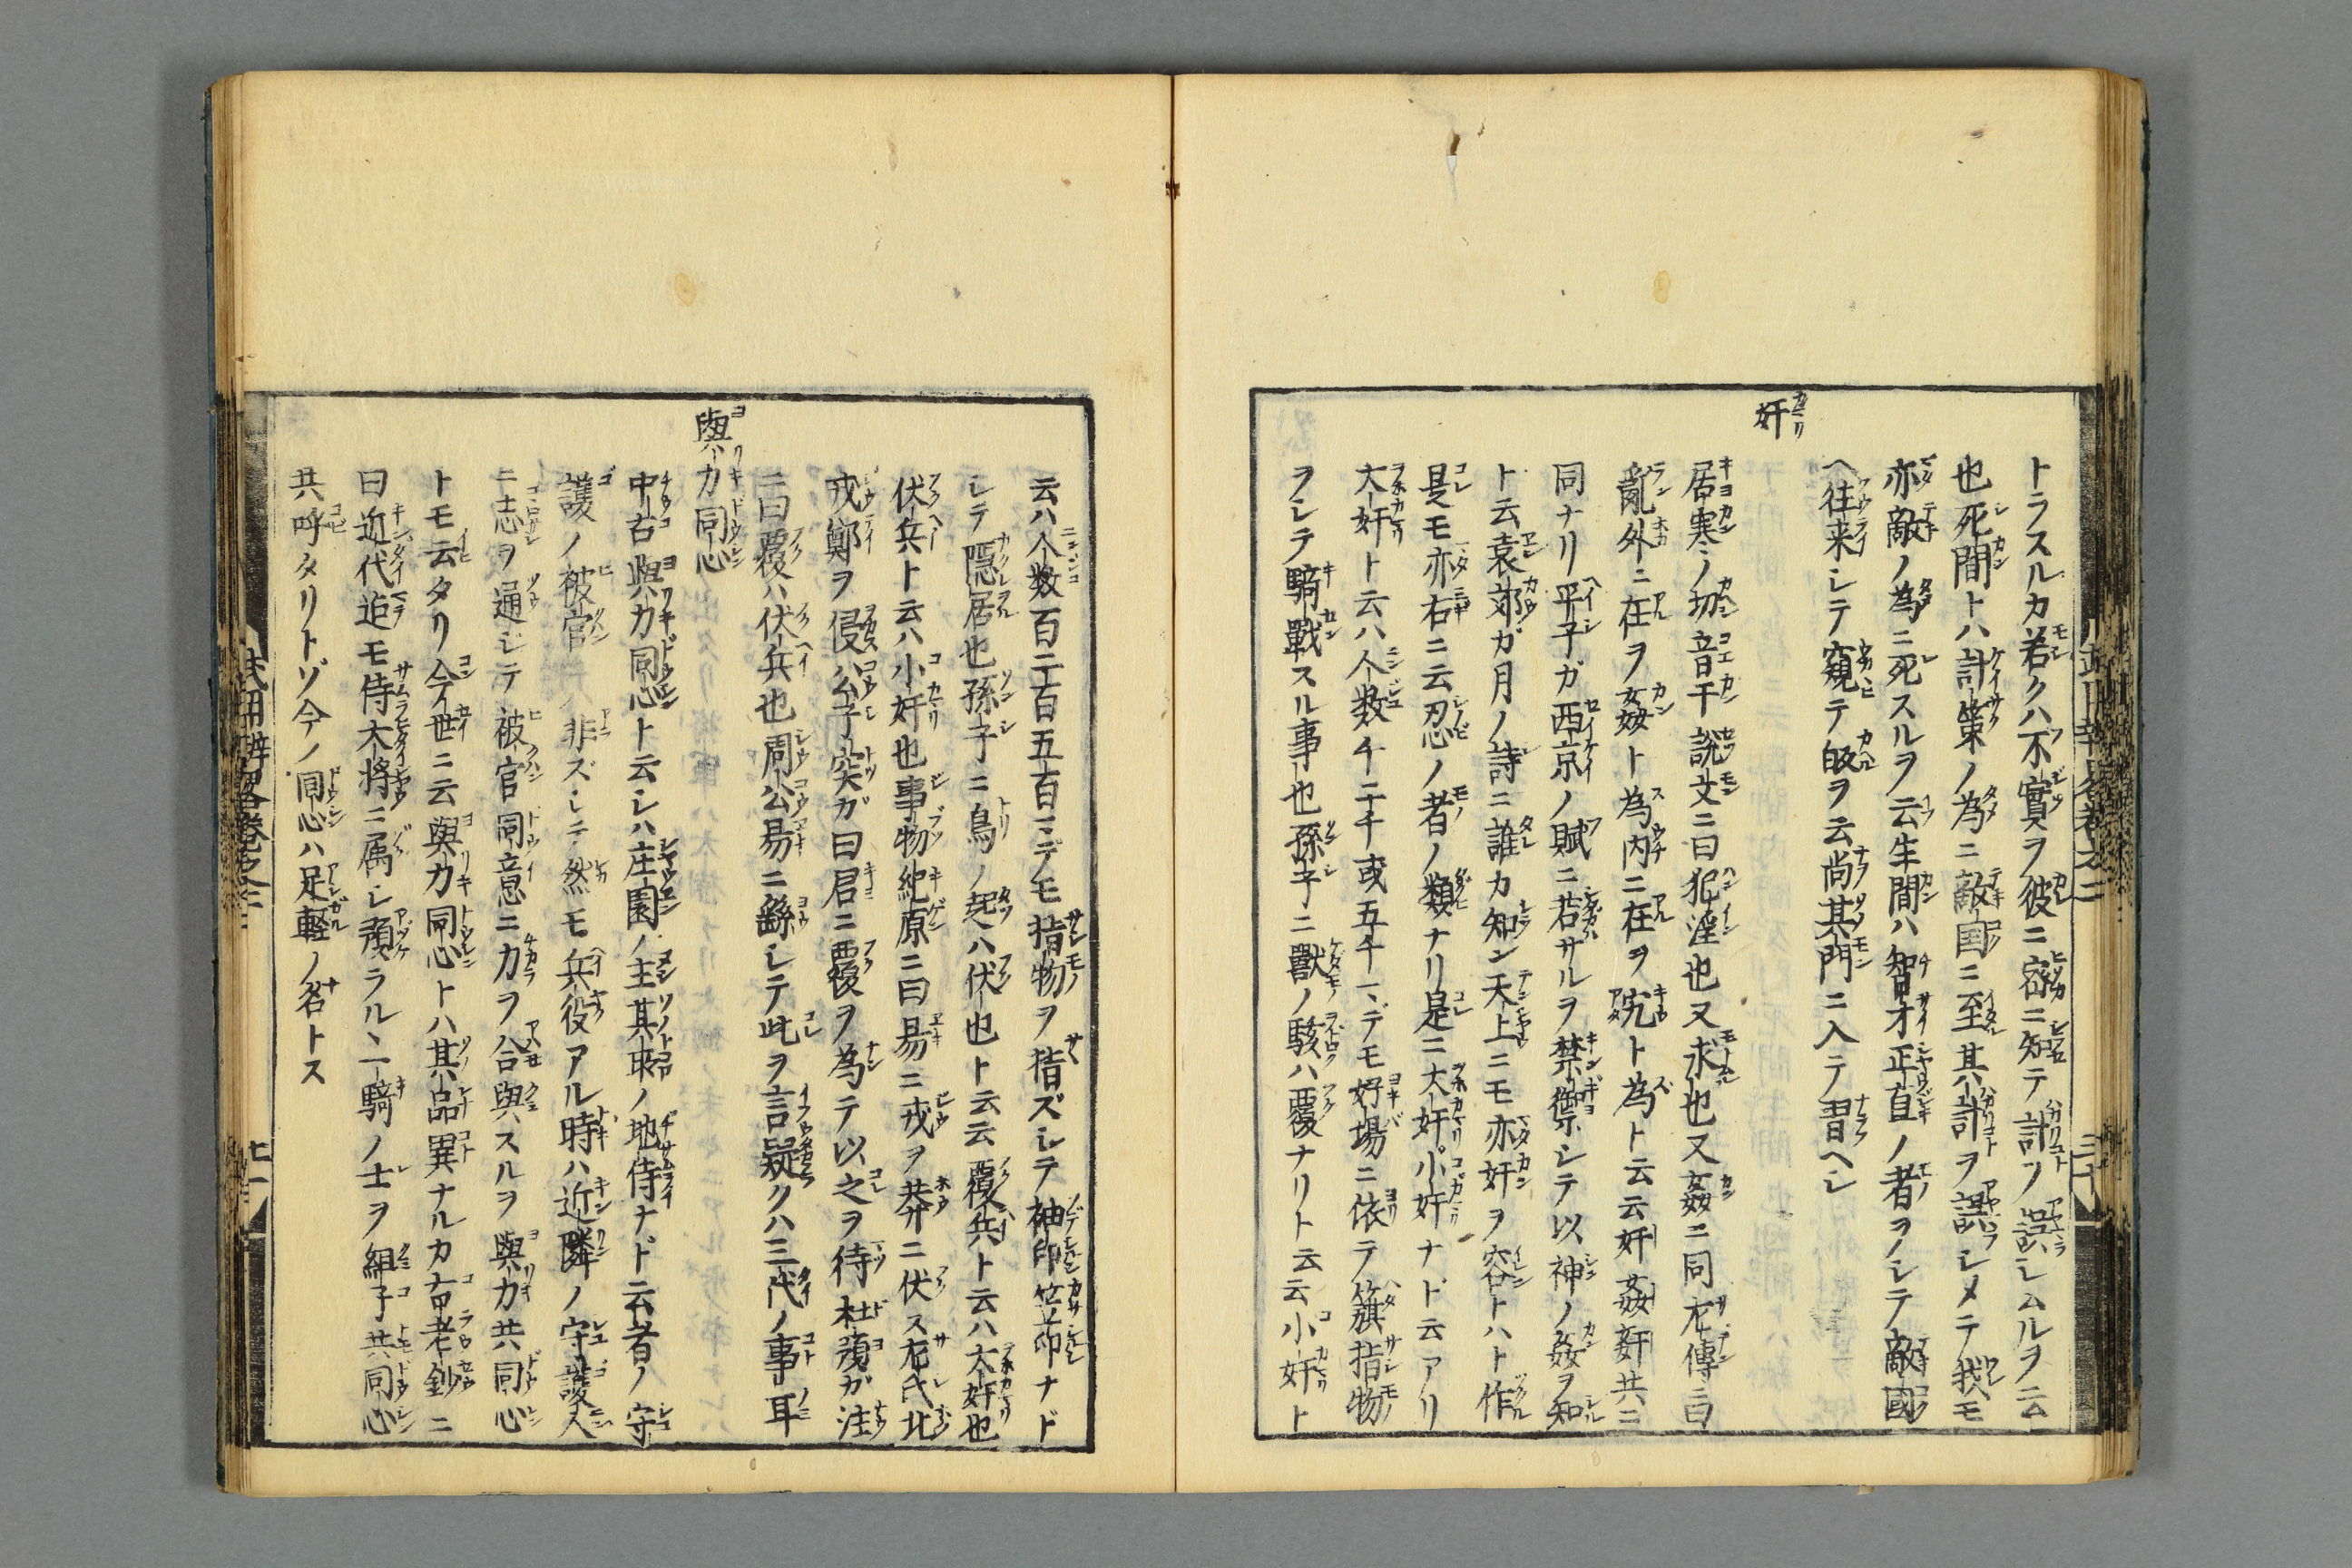 トラスルカ若クハ不實ヲ彼ニ密ニ知テ計ヲ誤ラシムルヲ云
也死間トハ計策ノ為ニ敵国ニ至其計ヲ誤シメテ我モ
亦敵ノ為ニ死スルヲ云生間ハ智才正直ノ者ヲノシテ敵國
ヘ往来シテ窺テ皈ヲ云尚其門ニ入テ習ヘシ
奸
居寒ノ切音干説文ニ曰犯淫也又求也又姦ニ同左傳ニ曰
亂外ニ在ヲ姦ト為内ニ在ヲ宄ト為ト云云奸姦姧共ニ
同ナリ平子ガ西京ノ賦ニ若サルヲ禁禦シテ以神ノ姦ヲ知
ト云袁郊ガ月ノ詩ニ誰カ知ン天上ニモ亦奸ヲ容トハト作
是モ亦右ニ云忍ノ者ノ類ナリ是ニ大奸小奸ナドト云アリ
大奸ト云ハ人数千二千或五千ニデモ好場ニ依テ籏指物
ヲシテ騎戰スル事也孫子ニ獸ノ駭ハ覆ナリト云云小奸ト
云ハ人数百二百五百ニデモ指物ヲ指ズシテ袖印笠印ナド
シテ隱居也孫子ニ鳥ノ起ハ伏也ト云云覆兵ト云ハ大奸也
伏兵ト云ハ小奸也事物紀原ニ曰易ニ戎ヲ莽ニ伏ス左氏北
戎鄭ヲ侵公子突ガ曰君ニ覆ヲ為テ以之ヲ待杜預ガ注
ニ曰覆ハ伏兵也周公易ニ繇シテ此ヲ言疑クハ三代ノ事耳
與力同心
中古與力同心ト云シハ庄園ノ主其所ノ地侍ナド云者ノ守
護ノ被官ニノ非ズシテ然モ兵役アル時ハ近隣ノ守護人
ニ志ヲ通ジテ被官同意ニ力ヲ合與スルヲ與力共同心
トモ云タリ今世ニ云與力同心トハ其品異ナルカ古老鈔ニ
曰近代迄モ侍大將ニ属シ預ラルヽ一騎ノ士ヲ組子共同心
共呼タリトゾ今ノ同心ハ足軽ノ名トス
武用辨畧巻之二